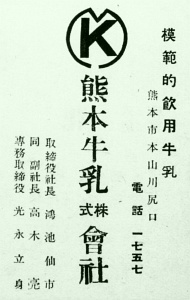 模範的飲用牛乳
熊本市本山川尻口
電話 一七五七
K
熊本牛乳株式會社
取締役社長 鴻池仙市
同 副社長 高木亮
専務取締役 光永立身